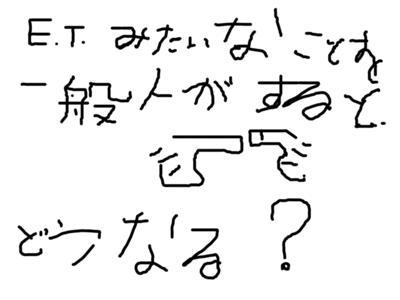 E.T. みたいなことを
一般人がすると
どうなる?